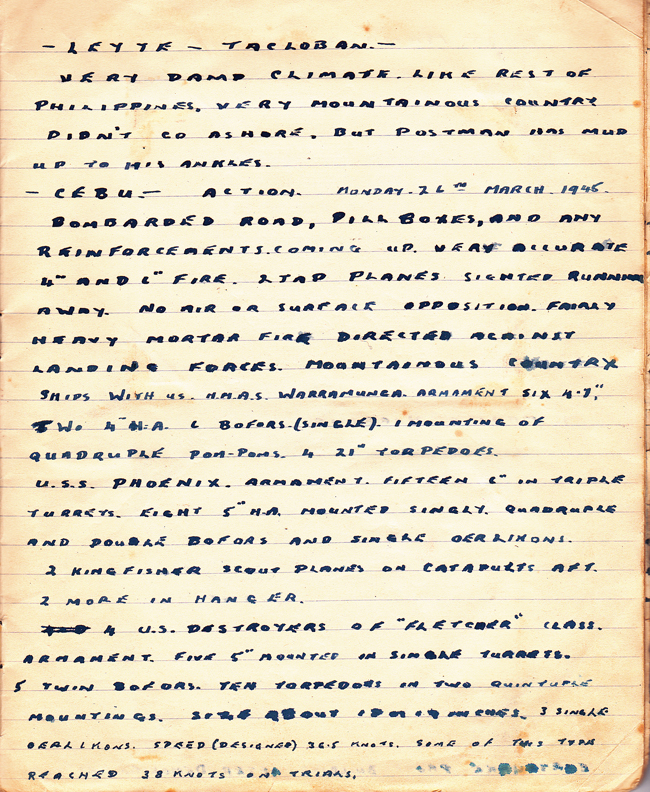 - LEYTE - TACLOBAN.-
VERY DAMP CLIMATE. LIKE REST OF
PHILIPPINES. VERY MOUNTAINOUS COUNTRY
DIDN'T GO ASHORE, BUT POSTMAN HAS MUD
UP TO HIS ANKLES.
- CEBU.- ACTION. MONDAY. 26TH MARCH. 1945.
BOMBARDED ROAD, PILL BOXES, AND ANY
REINFORCEMENTS. COMING UP. VERY ACCURATE
4" AND 6" FIRE. 2 JAP PLANES SIGHTED RUNNING
AWAY. NO AIR OR SURFACE OPPOSITION. FAIRLY
HEAVY MORTAR FIRE DIRECTED AGAINST
LANDING FORCES. MOUNTAINOUS COUNTRY
SHIPS WITH US. H.M.A.S. WARRAMUNGA. ARMAMENT SIX 4.7",
TWO 4" H.A. 6 BOFORS. (SINGLE). 1 MOUNTING OF
QUADRUPLE POM-POMS. 4 21" TORPEDOES.
U.S.S. PHOENIX. ARMAMENT. FIFTEEN 6" IN TRIPLE
TURRETS. EIGHT 5" H.A. MOUNTED SINGLY. QUADRUPLE
AND DOUBLE BOFORS AND SINGLE OERLIKONS.
2 KINGFISHER SCOUT PLANES ON CATAPULTS AFT.
2 MORE IN HANGER.
4 U.S. DESTROYERS OF "FLETCHER" CLASS.
ARMAMENT. FIVE 5" MOUNTED IN SINGLE TURRETS.
5 TWIN BOFORS. TEN TORPEDOES IN TWO QUINTUPLE
MOUNTINGS. SIZE ABOUT 3 SINGLE
OERLIKONS. SPEED (DESIGNED) 36.5 KNOTS. SOME OF THIS TYPE
REACHED 38 KNOTS ON TRIALS.